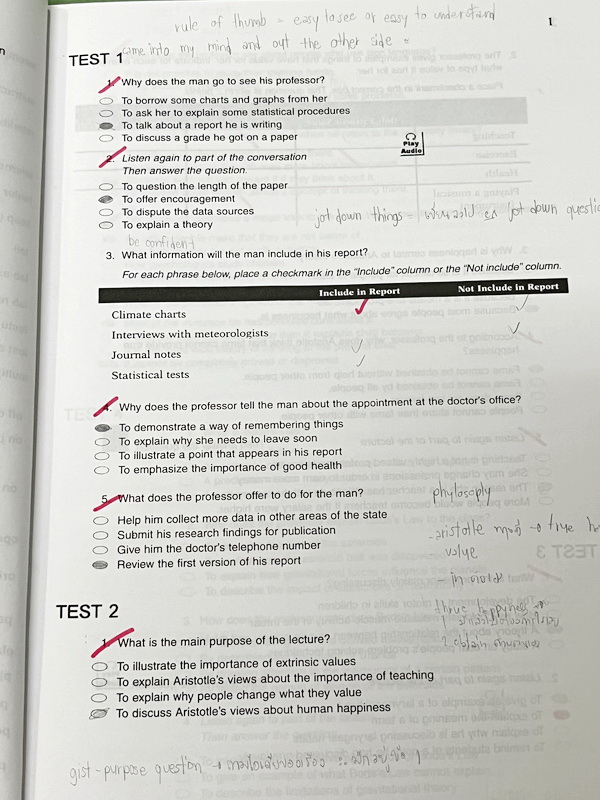 rule of thumb = easy to see or easy to understand
1
came into my mind and out the other side =
TEST 1
1. Why does the man go to see his professor?
To borrow some charts and graphs from her
To ask her to explain some statistical procedures
To talk about a report he is writing
To discuss a grade he got on a paper
2. Listen again to part of the conversation
Then answer the question.
Play
Audio
To question the length of the paper
To offer encouragement
To dispute the data sources
To explain a theory
jot down things = jot down
be confident
3. What information will the man include in his report?
For each phrase below, place a checkmark in the "Include" column or the "Not include" column.
Include in Report Not Include in Report
Climate charts
Interviews with meteorologists
Journal notes
Statistical tests
4. Why does the professor tell the man about the appointment at the doctor's office?
To demonstrate a way of remembering things
To explain why she needs to leave soon
To illustrate a point that appears in his report
To emphasize the importance of good health
5. What does the professor offer to do for the man?
Help him collect more data in other areas of the state
Submit his research findings for publication
Give him the doctor's telephone number
Review the first version of his report
phylosoply
- aristotle
- value
TEST 2
1. What is the main purpose of the lecture?
To illustrate the importance of extrinsic values
To explain Aristotle's views about the importance of teaching
To explain why people change what they value
To discuss Aristotle's views about human happiness
gist-purpose question